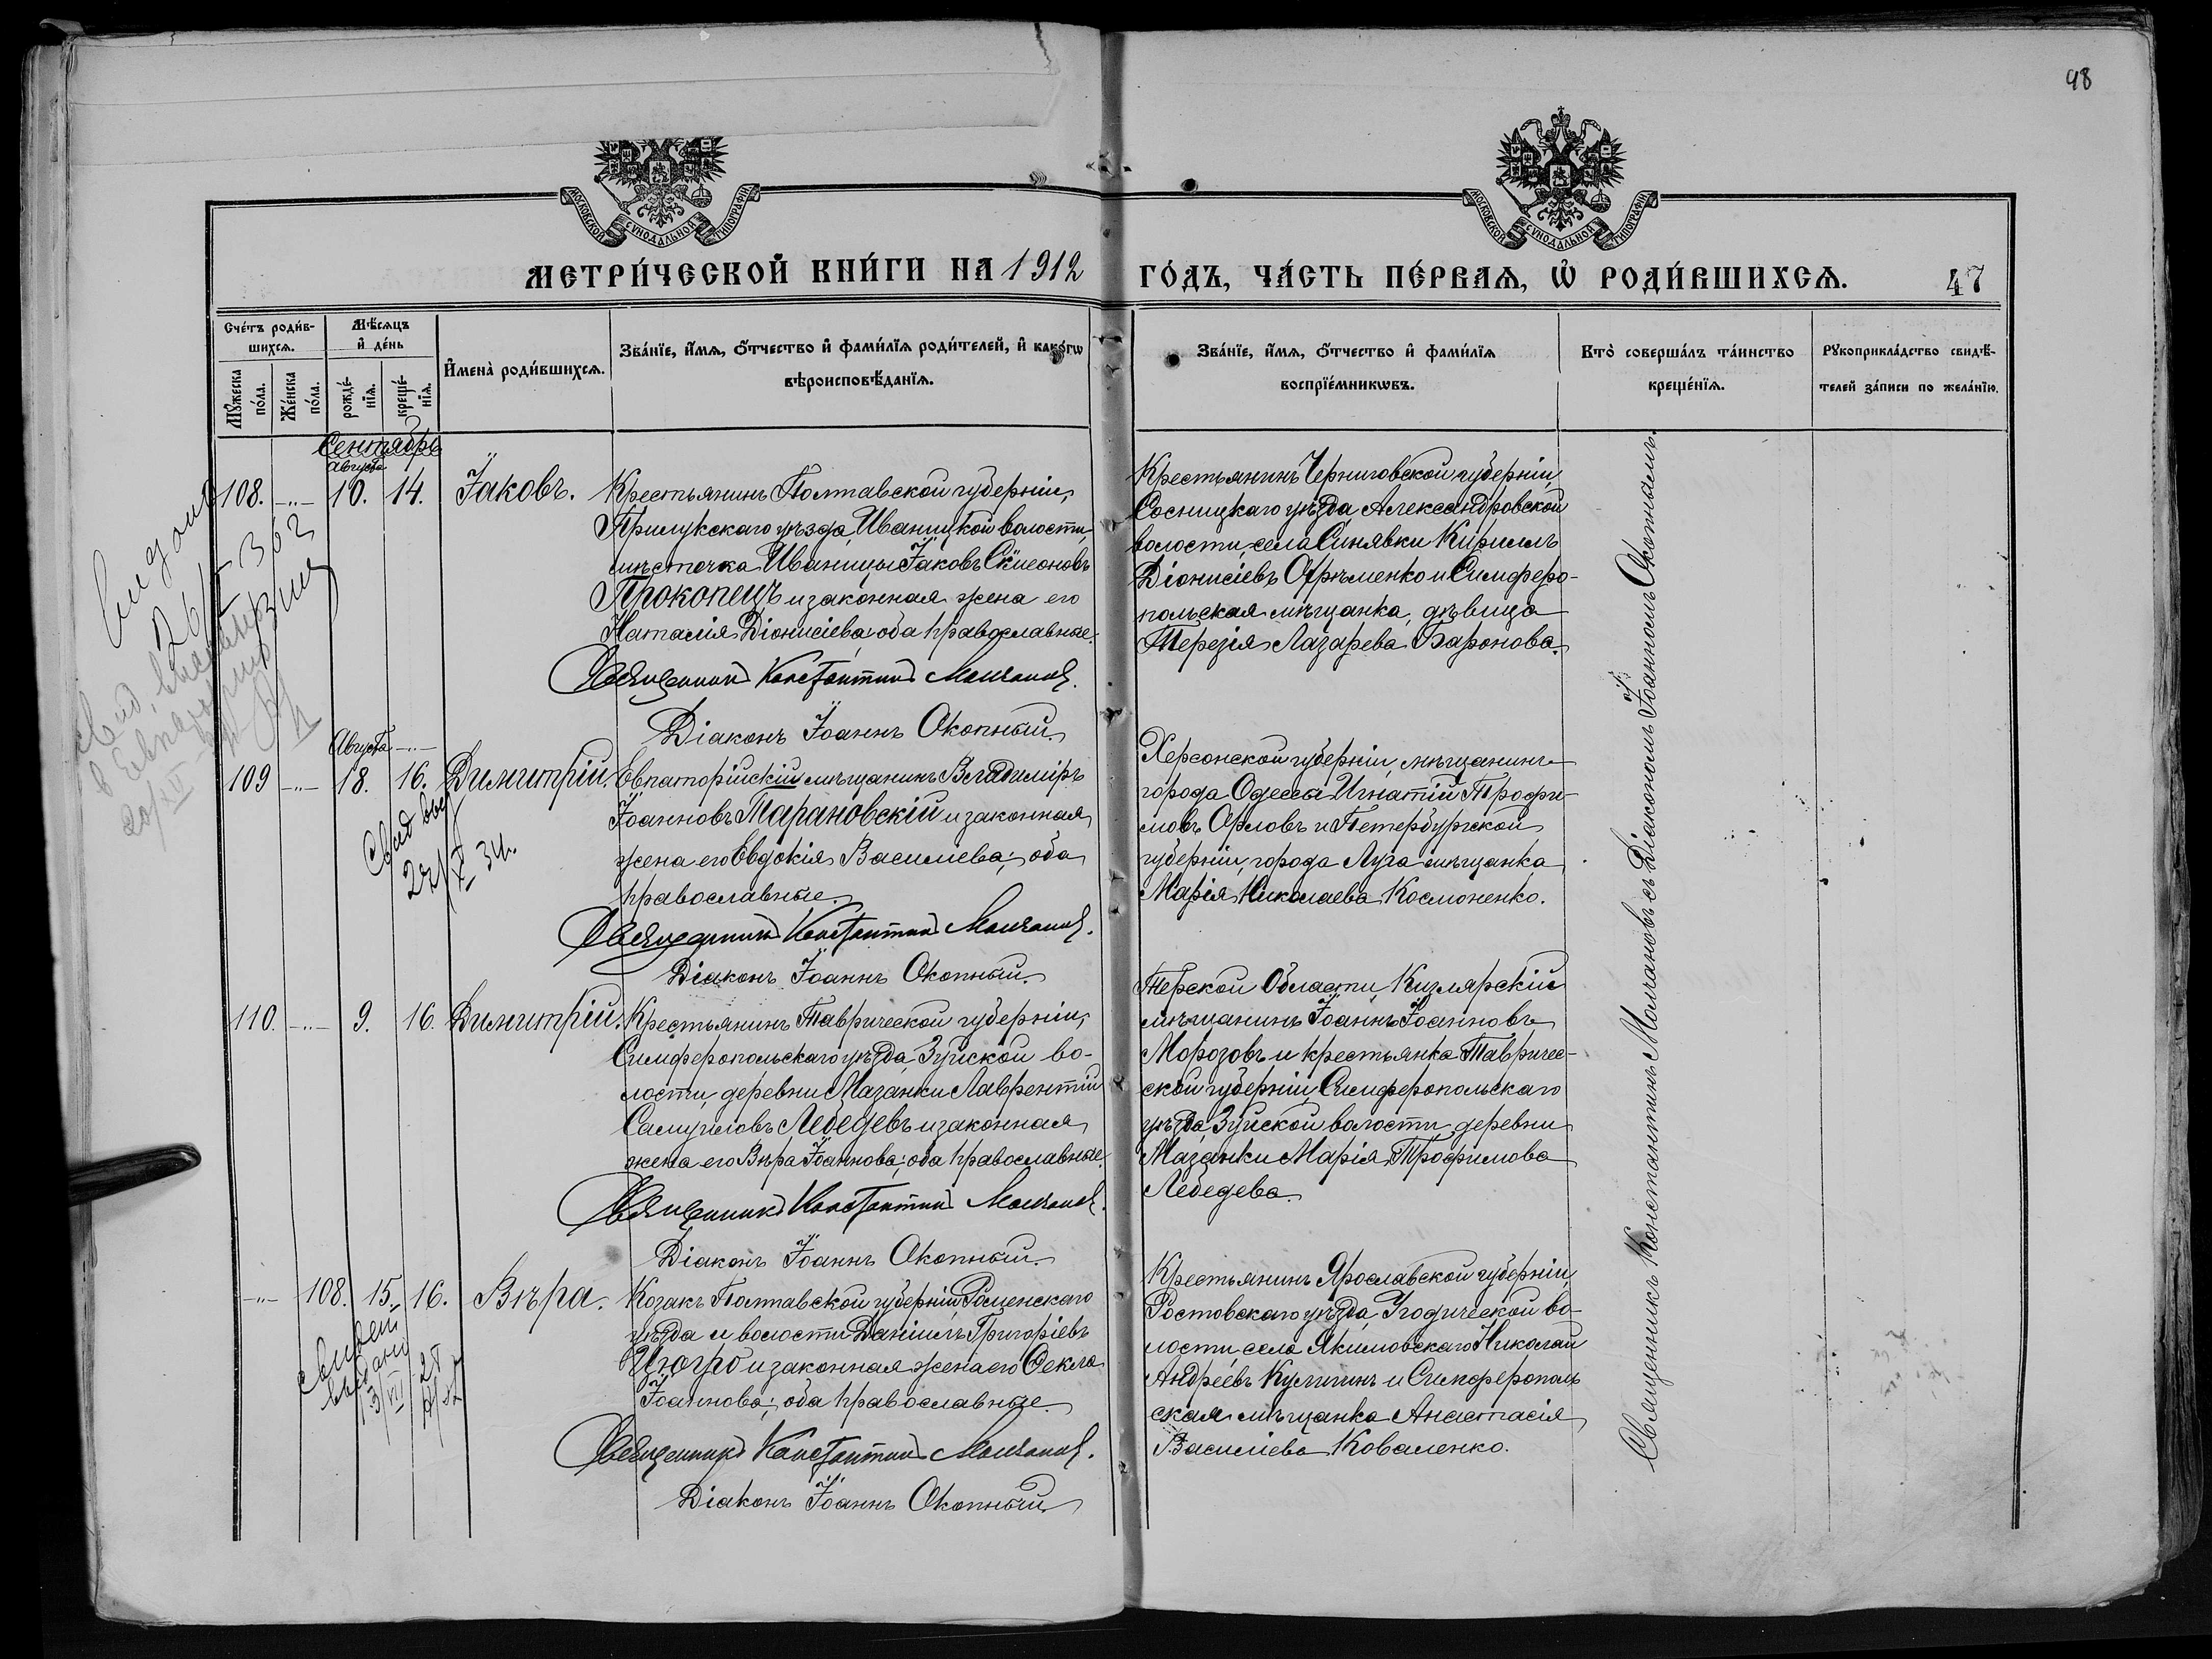 98
МОСКОВСКОЙ СѴНОДАЛЬНОЙ ТИПОГРАФІИ
МОСКОВСКОЙ СѴНОДАЛЬНОЙ ТИПОГРАФІИ
МЕТРИ́ЧЕСКОЙ КНИ́ГИ НА 1912
ГО́ДЪ, ЧА́СТЬ ПЕ́РВАѦ, Ѡ҆ РОДИ́ВШИХСѦ.
47
Сче́тъ роди́в-
шихсѧ.
Мꙋ́жеска по́ла.
Же́нска по́ла.
Мѣ́сѧцъ
и҆ де́нь
рожде́-
нїѧ.
креще́-
нїѧ.
И҆мена̀ роди́вшихсѧ.
Зва́нїе, и҆́мѧ, ѻ҆́тчество и҆ фами́лїѧ роди́телей, и҆ како́гѡ
вѣроисповѣ́данїѧ.
Зва́нїе, и҆́мѧ, ѻ҆́тчество и҆ фами́лїѧ
воспрїе́мникѡвъ.
Кто̀ соверша́лъ та́инство
креще́нїѧ.
Рꙋкоприкла́дство свидѣ́-
телей за́писи по жела́нїю.
Сентябрь
Августа
108. -"- 10. 14. Іаковъ.
Крестьянинъ Полтавской губерніи,
Прилукскаго уѣзда, Иваницкой волости,
мѣстечка Иваницы Іаковъ Сѵмеоновъ
Прокопецъ и законная жена его
Наталія Діонисіева; оба православные.
Священникъ Константинъ Молчановъ.
Діаконъ Іоаннъ Окопный.
Крестьянинъ Черниговской губерніи,
Сосницкаго уѣзда, Александровской
волости, села Синявки Кириллъ
Діонисіевъ Ефименко и Симферо-
польская мѣщанка, дѣвица
Терезія Лазарева Баронова.
Августа -"-
109 -"- 18. 16. Димитрій.
Свид выд
22/X 34.
Евпаторійскій мѣщанинъ Владиміръ
Іоанновъ Тарановскій и законная
жена его Евдокія Василіева; оба
православные.
Священникъ Константинъ Молчановъ.
Діаконъ Іоаннъ Окопный.
Херсонской губерніи, мѣщанинъ
города Одессы Игнатій Трофи-
мовъ Орловъ и Петербургской
губерніи, города Луга мѣщанка
Марія Николаева Космоненко.
110. -"- 9. 16. Димитрій.
Крестьянинъ Таврической губерніи,
Симферопольскаго уѣзда, Зуйской во-
лости, деревни Мазанки Лаврентій
Самуиловъ Лебедевъ и законная
жена его Вѣра Іоаннова; оба православные.
Священникъ Константинъ Молчановъ.
Діаконъ Іоаннъ Окопный.
Терской Области, Кизлярскій
мѣщанинъ Іоаннъ Іоанновъ
Морозовъ и крестьянка Тавричес-
кой губерніи, Симферопольскаго
уѣзда, Зуйской волости, деревни
Мазанки Марія Трофимова
Лебедева.
-"- 108. 15. 16. Вѣра.
Козакъ Полтавской губерніи, Роменскаго
уѣзда и волости Даніилъ Григоріевъ
Цюгро и законная жена его Ѳекла
Іоаннова; оба православные.
Священникъ Константинъ Молчановъ.
Діаконъ Іоаннъ Окопный.
Крестьянинъ Ярославской губерніи,
Ростовскаго уѣзда, Угодической во-
лости, села Якимовскаго Николай
Андреевъ Куличинъ и Симферополь
ская мѣщанка Анастасія
Василіева Коваленко.
Священникъ Константинъ Молчановъ съ Діакономъ Іоанномъ Окопнымъ.